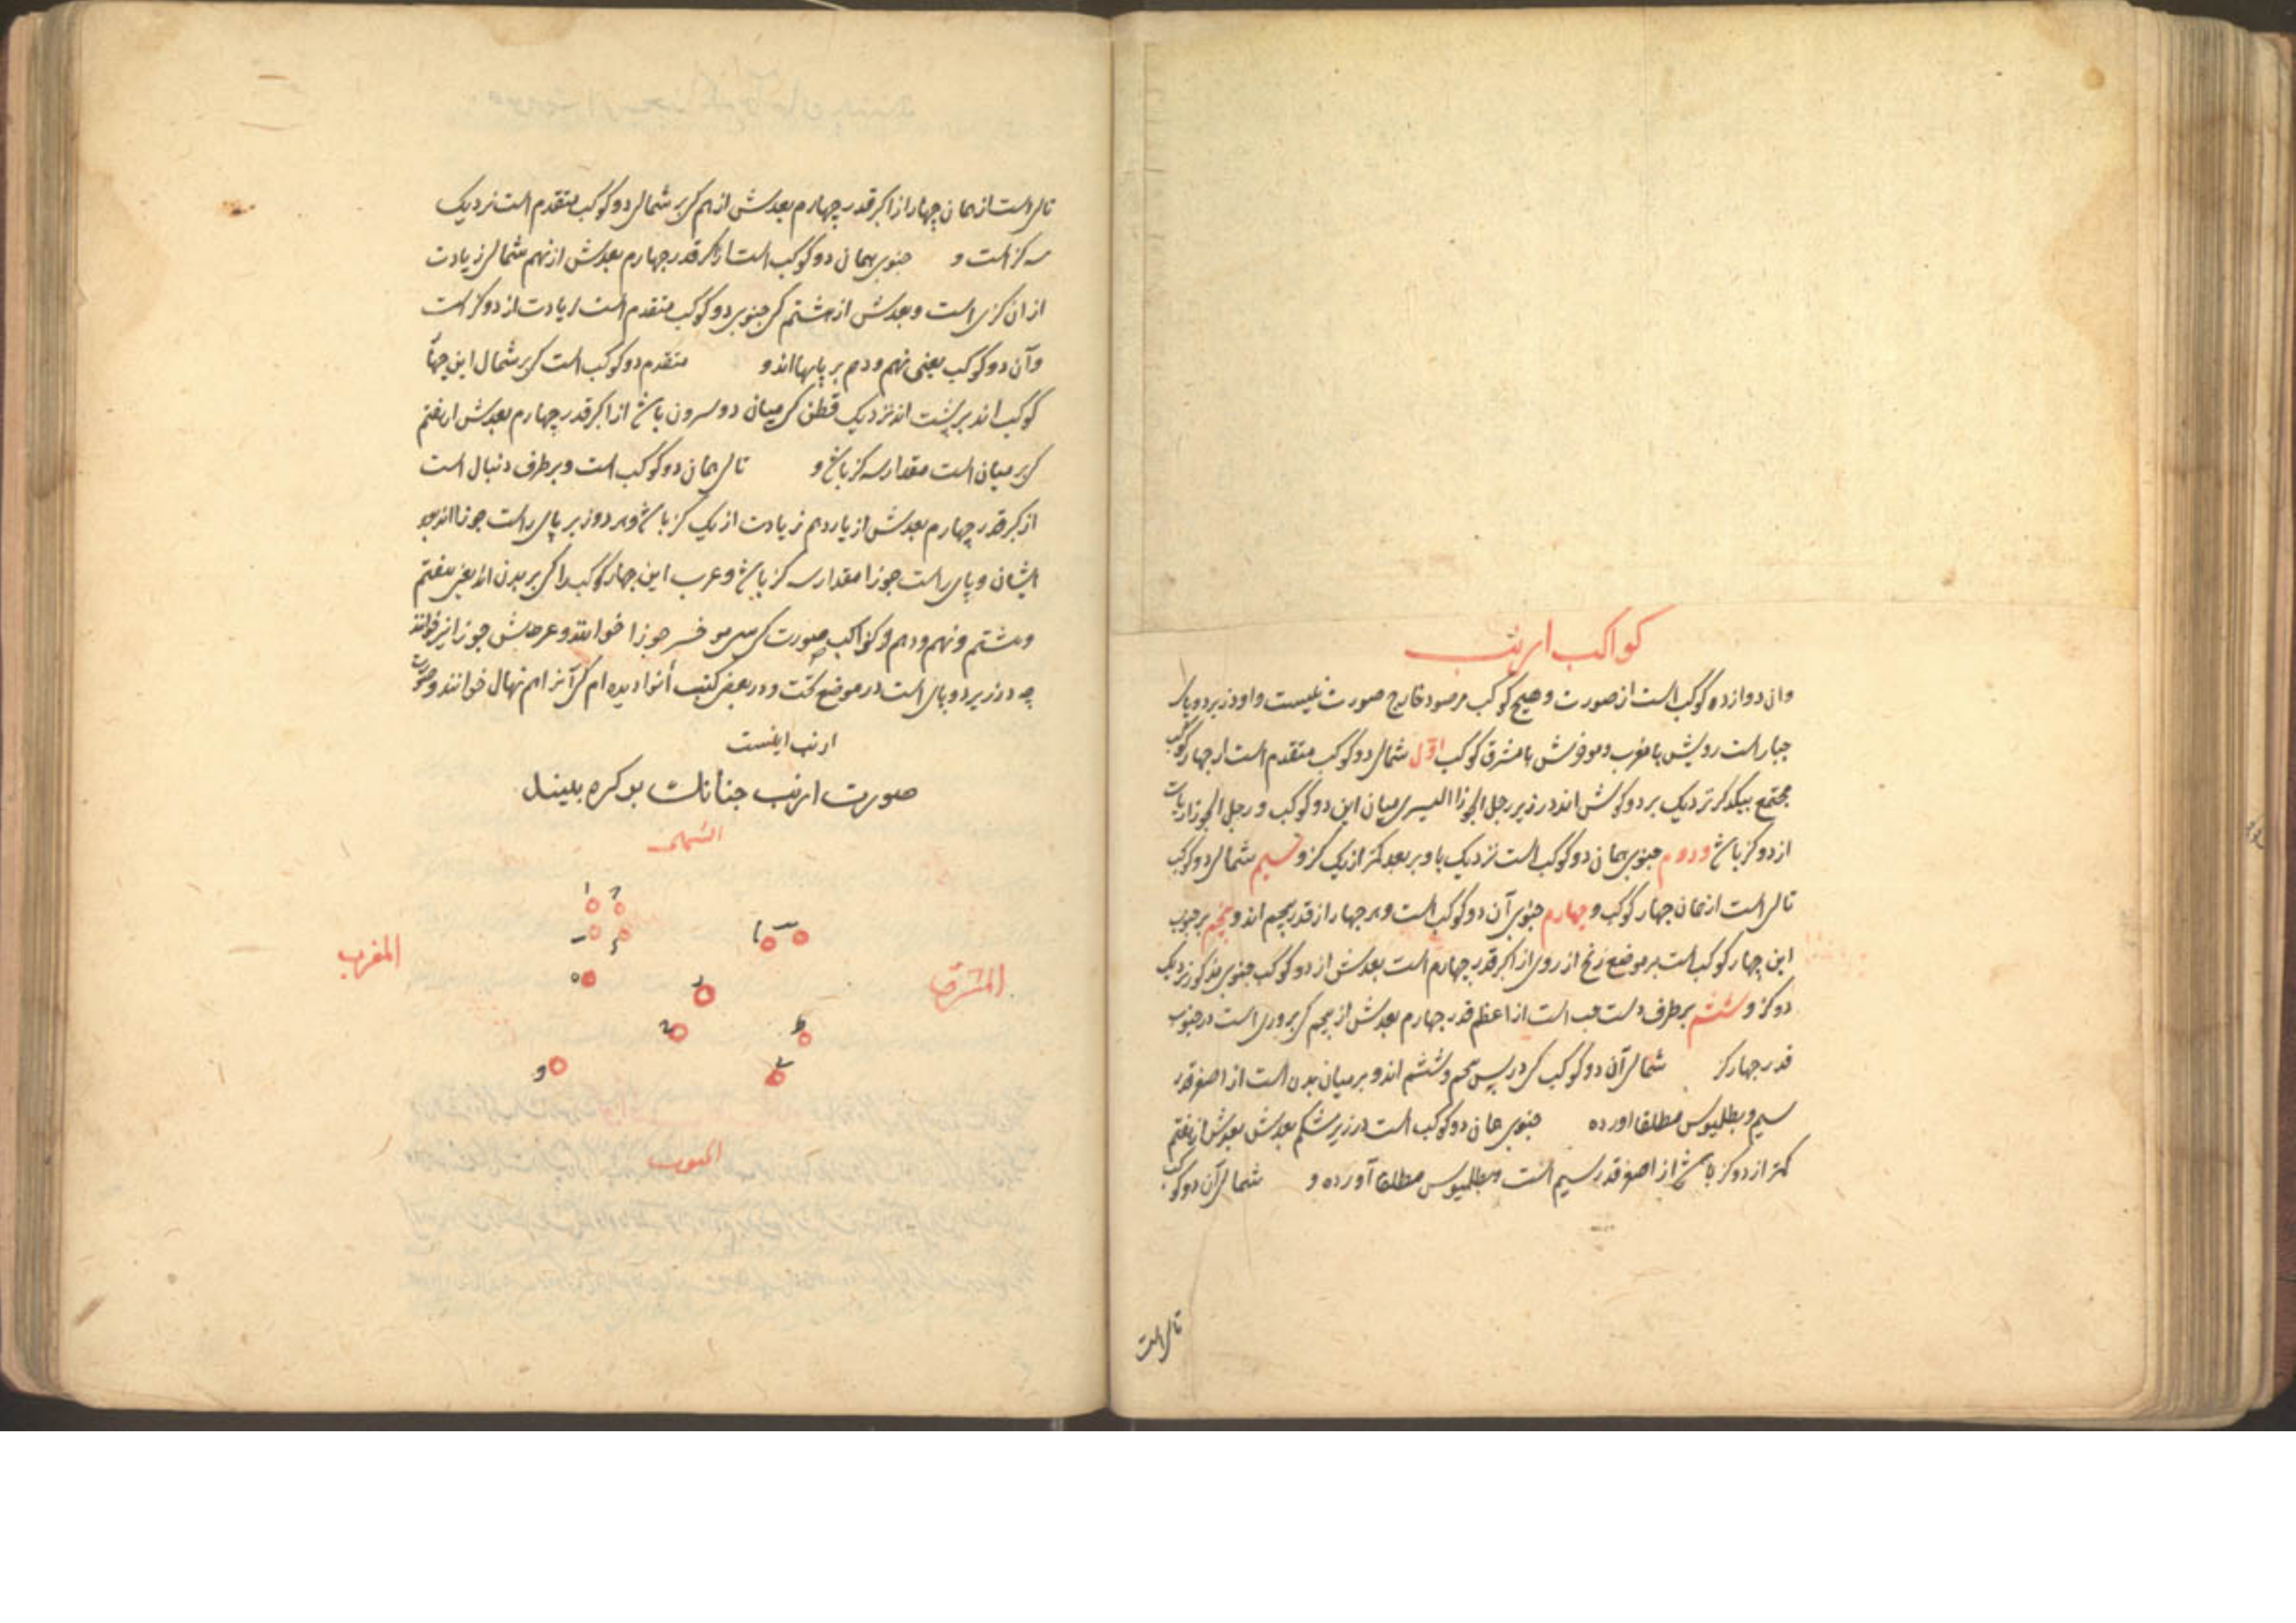 کواکب ارنب
وان دوازده کوکب است از صورت وهیچ کوکب مرصود خارج صورت نیست واو در زیر دو پای
جبار است رویش با مغرب وموخرش با مشرق کوکب اول شمالی دو کوکب متقدم است از چهار کوکب
مجتمع بیکدکر نزدیک بر دو کوش اند در زیر رجل الجوزا الیسری میان این دو کوکب و رجل الجوزا زیادت
از دو کز باشد ودوم جنوبی همان دو کوکب است نزدیک باو بر بعد کمتر از یک کز و سیم شمالی دو کوکب
تالی است از همان چهار کوکب و چهارم جنوبی آن دو کوکب است وهر چهار از قدر پنجم اند و پنجم بر جنوب
این چهار کوکب است بر موضع زنخ از روی از اکبر قدر چهارم است بعدش از دو کوکب جنوبی مذکور نزدیک
دو کز و ششم بر طرف دست چپ است از اعظم قدر چهارم بعدش از پنجم کی بر روی است در جنوب
قدر چهار کز شمالی آن دو کوکب کی در پس پنجم وششم اند و بر میان بدن است از اصغر قدر
سیم و بطلمیوس مطلقا اورده جنوبی همان دو کوکب است در زیر شکم بعدش بعدش از هفتم
کمتر از دو کز باشد از اصغر قدر سیم است وبطلمیوس مطلقا آورده و شمالی آن دو کوکب
تالی است
تالی است از همان چهار از اکبر قدر چهارم بعدش از هم کی بر شمالی دو کوکب متقدم است نزدیک
سه کز است و جنوبی همان دو کوکب است از اکبر قدر چهارم بعدش از نهم شمالی زیادت
از ان کزی است وبعدش از هشتم کی جنوبی دو کوکب متقدم است زیادت از دو کز است
وآن دو کوکب یعنی نهم ودهم بر پایها اند و متقدم دو کوکب است کی بر شمال این چهار
کوکب اند بر پشت اند نزدیک قطن کی میان دو سرون باشد از اکبر قدر چهارم بعدش از هفتم
کی بر میان است مقدار سه کز باشد و تالی همان دو کوکب است وبر طرف دنبال است
از اکبر قدر چهارم بعدش از یازدهم زیادت از یک کز باشد وهر دو زیر پای راست جوزا اند بعد
ایشان وپای راست جوزا مقدار سه کز باشد وعرب این چهار کوکب را کی بر بدن اند یعنی هفتم
وهشتم ونهم ودهم و کواکب صورت کرسی موخر جوزا خوانند وعرش جوزا نیز خوانند
چه در زیر دو پای است در موضع تخت ودر بعض کتب أنوا دیده ام کی آنرا هم نهال خوانند وصورت
ارنب اینست
صورت ارنب چنانک بر کره بینند
الشمال
المغرب
المشرق
الجنوب